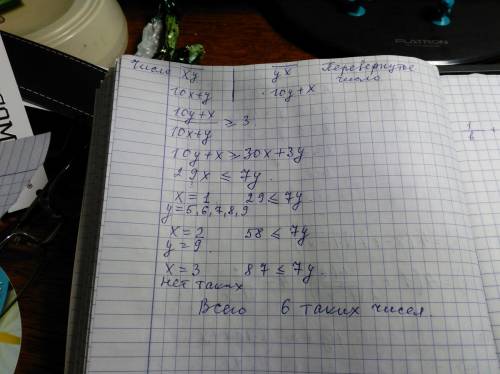 Число xy | yx Перевернутое число
10x+y | 10y+x
10y+x / 10x+y ≥ 3
10y+x ≥ 30x+3y
29x ≤ 7y
x=1 29 ≤ 7y
y=5,6,7,8,9
x=2 58 ≤ 7y
y=9
x=3 87 ≤ 7y
нет таких
Всего 6 таких чисел.
PLATRON